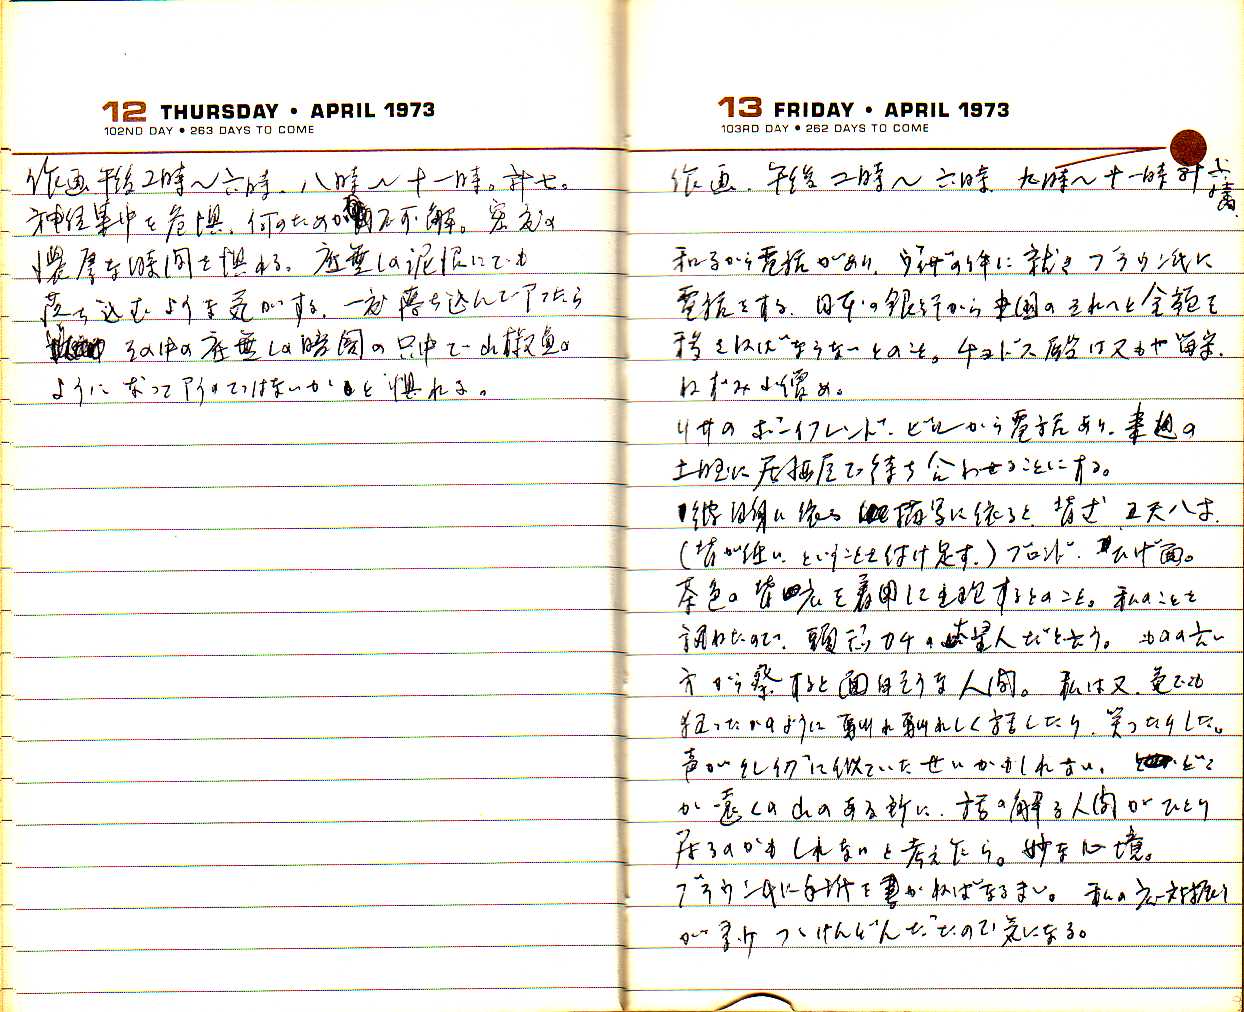 12 THURSDAY • APRIL 1973
102ND DAY • 263 DAYS TO COME
作画 午後二時〜六時、八時〜十一時。計七。
神経集中を危惧、何のためか不可解。密度の
濃厚な時間を惧れる。底無しの泥沼にでも
落ち込むような気がする。一度落ち込んでしまったら
その中の底無しの暗闇の只中で山椒魚の
ようになってしまうのではないかと惧れる。
13 FRIDAY • APRIL 1973
103RD DAY • 262 DAYS TO COME
作画、午後二時〜六時 九時〜十一時 計六時
和子から電話があり、の件に就きブラウン氏に
電話をする。日本の銀行から米国のそれへと金額を
移さねばならないとのこと。は又もや
ねずみ小僧め。
リサのボーイフレンド、ビルから電話あり、
土曜に居酒屋で待ち合わせることにする。
彼自身に依る描写に依ると 背丈 五尺八寸、
(背が低いということを付け足す。) ブロンド、ひげ面。
茶色の背広を着用して出現するとのこと。私のことを
訊ねたので、頭デッカチの人だと云う。ものの云い
方から察すると面白そうな人間。私は又、気でも
狂ったかのように馴れ馴れしく話したり、笑ったりした。
声がに似ていたせいかもしれない。どこ
か遠くの山のある所に、話の解る人間がひとり
居るのかもしれないと考えたら。妙な心境。
ブラウン氏に手紙を書かねばなるまい。私の応対振り
が つっけんどんだったので気になる。